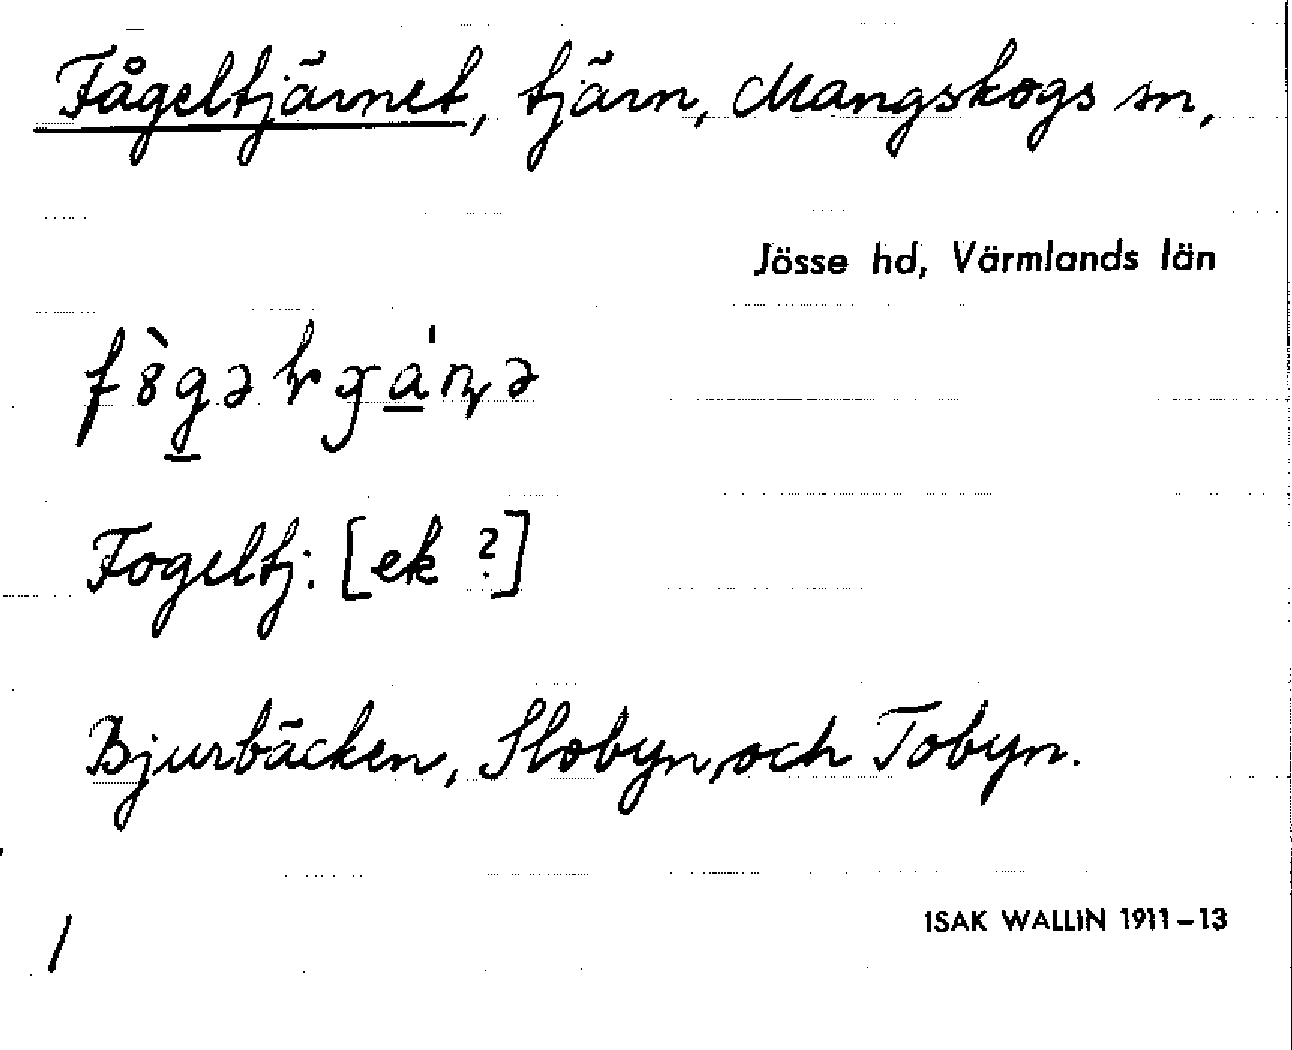 Fågeltjärnet, tjärn, Mangskogs sn,
Jösse hd, Värmlands län
Fogeltj: [ek ?]
Bjurbäcken, Slobyn, och Tobyn.
/
ISAK WALLIN 1911–13